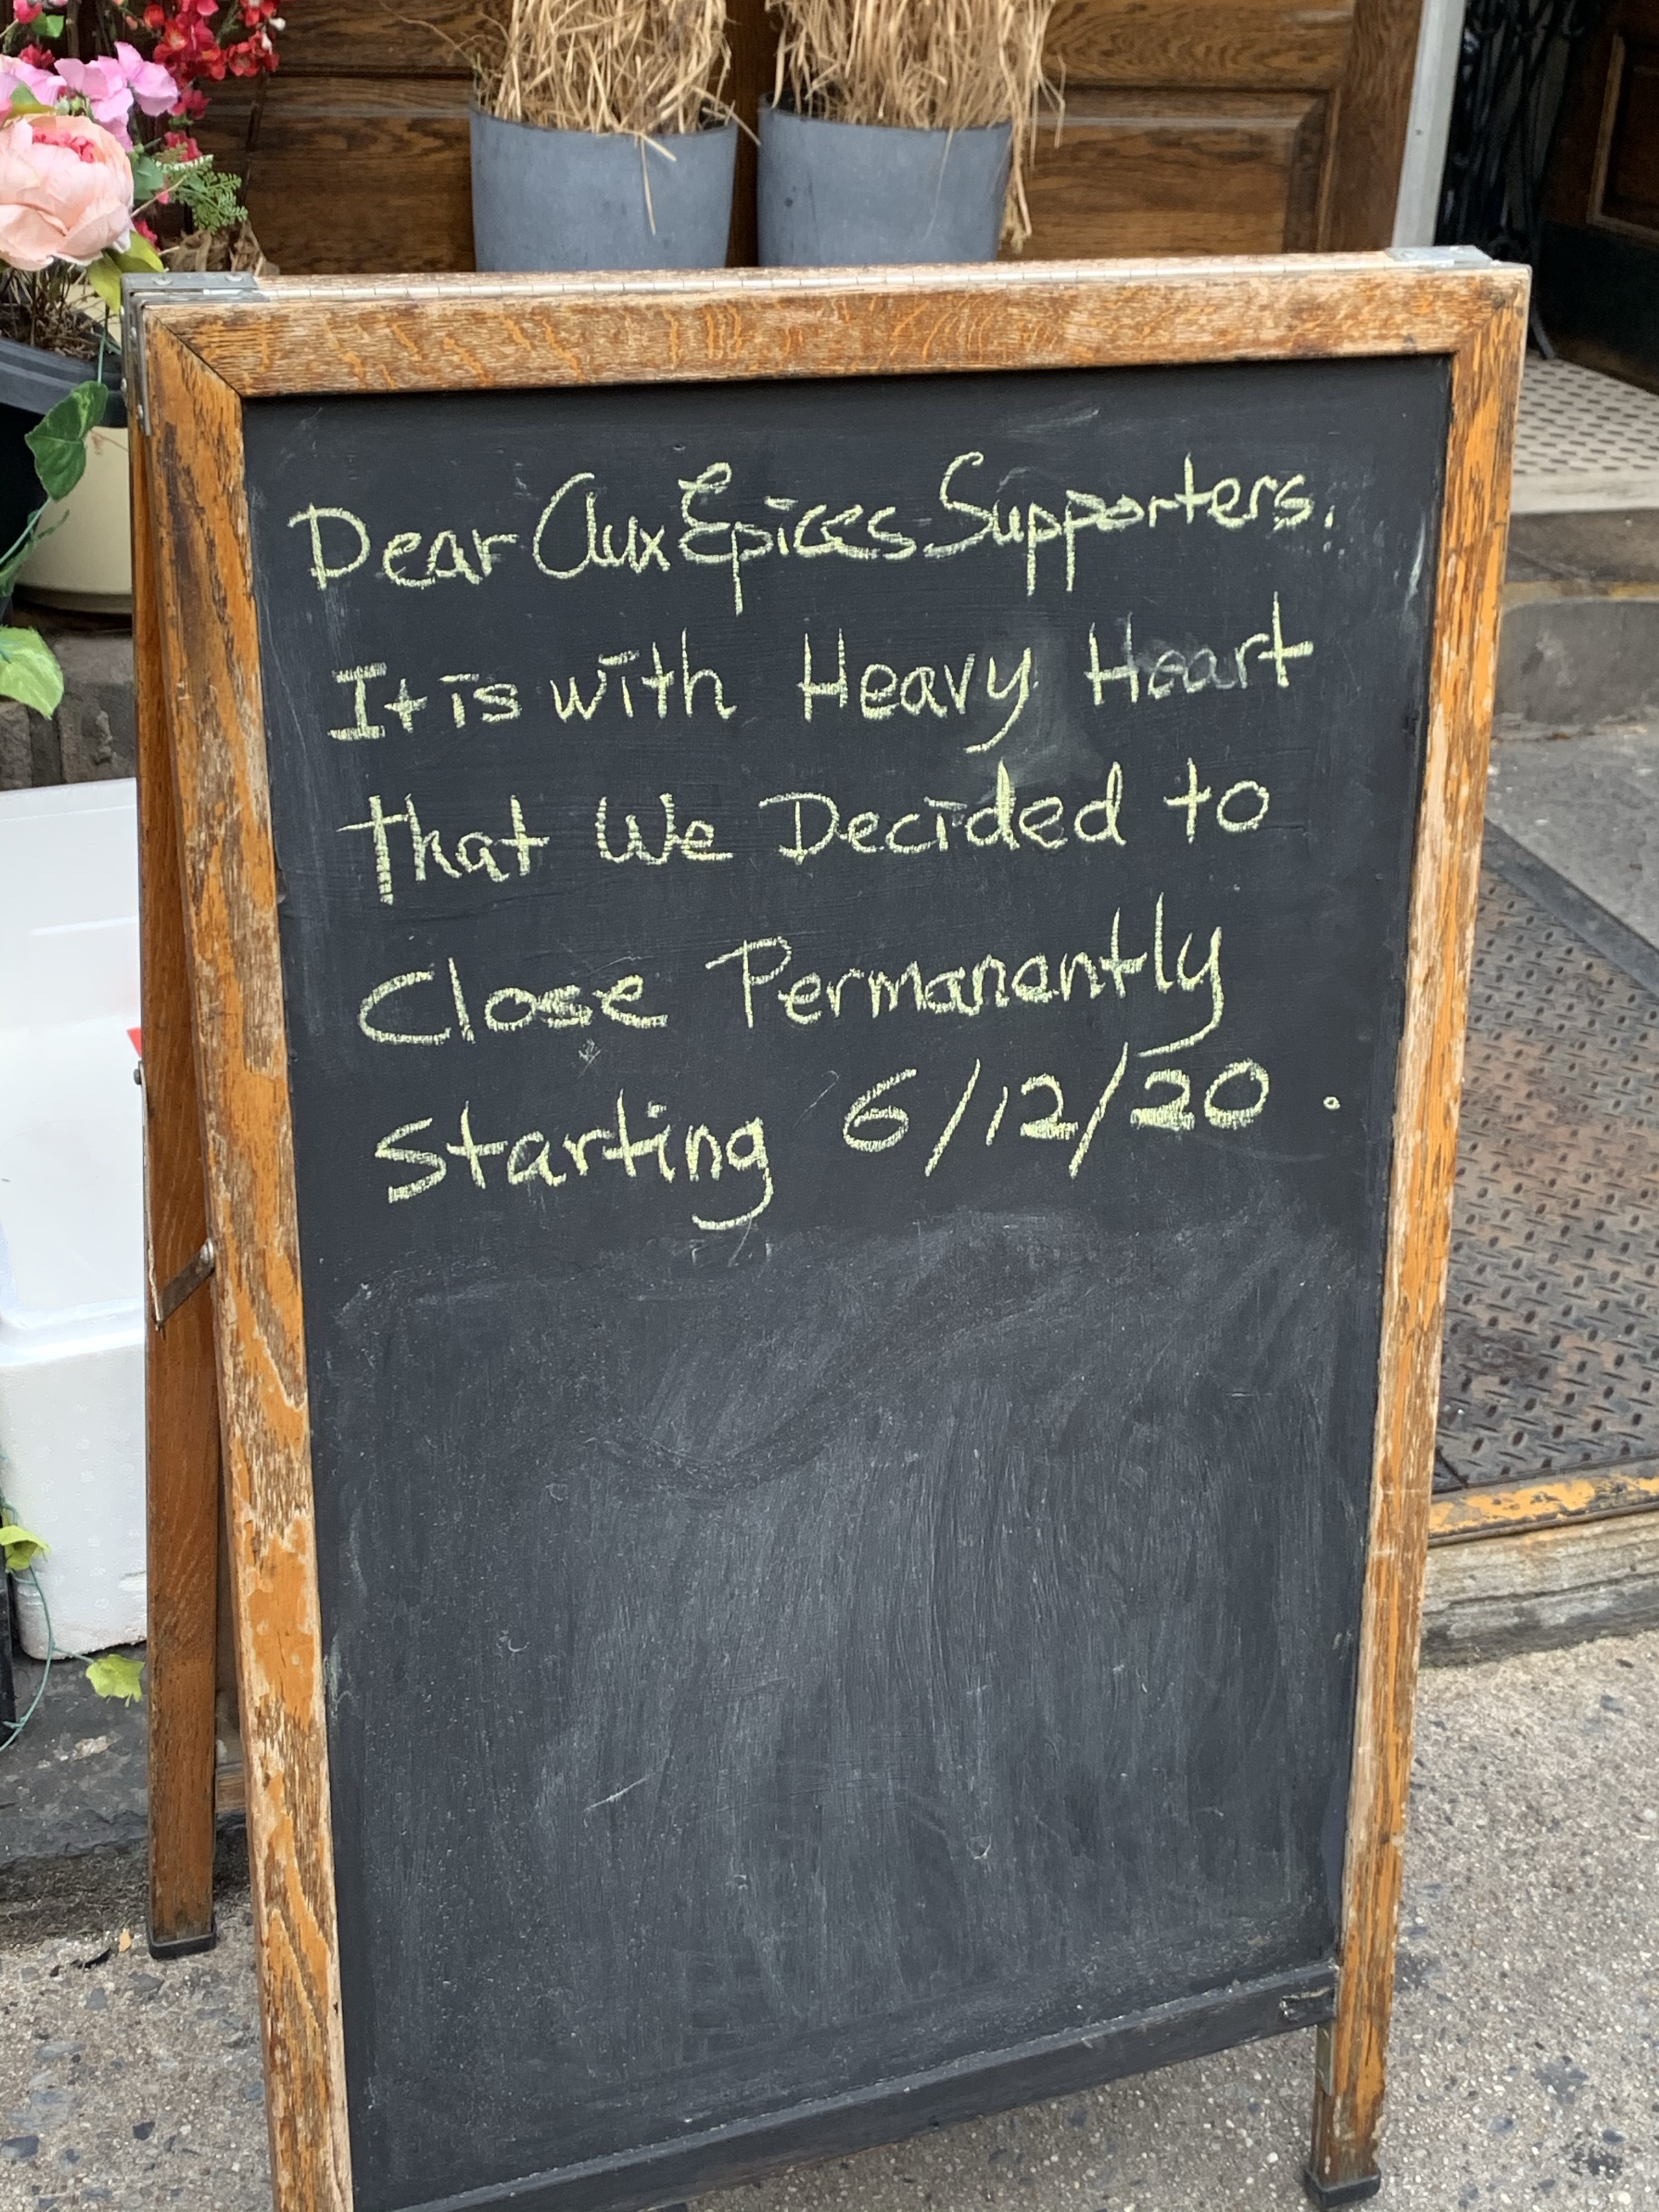 Dear Aux Epices Supporters.
It is with Heavy Heart
That We Decided to
Close Permanantly
Starting 6/12/20.